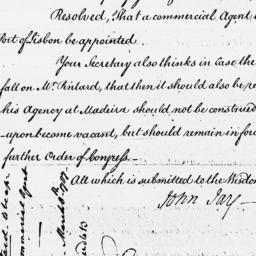 Resolved, that a commercial Agent
Port of Lisbon be appointed.
Your Secretary also thinks in Case the
fall on Mr. Pintard, that then it should also be re
his Agency at Madeira should not be construed
-upon become vacant, but should remain in for
further Order of Congress.—
All which is submitted to the Wisdom
John Jay—